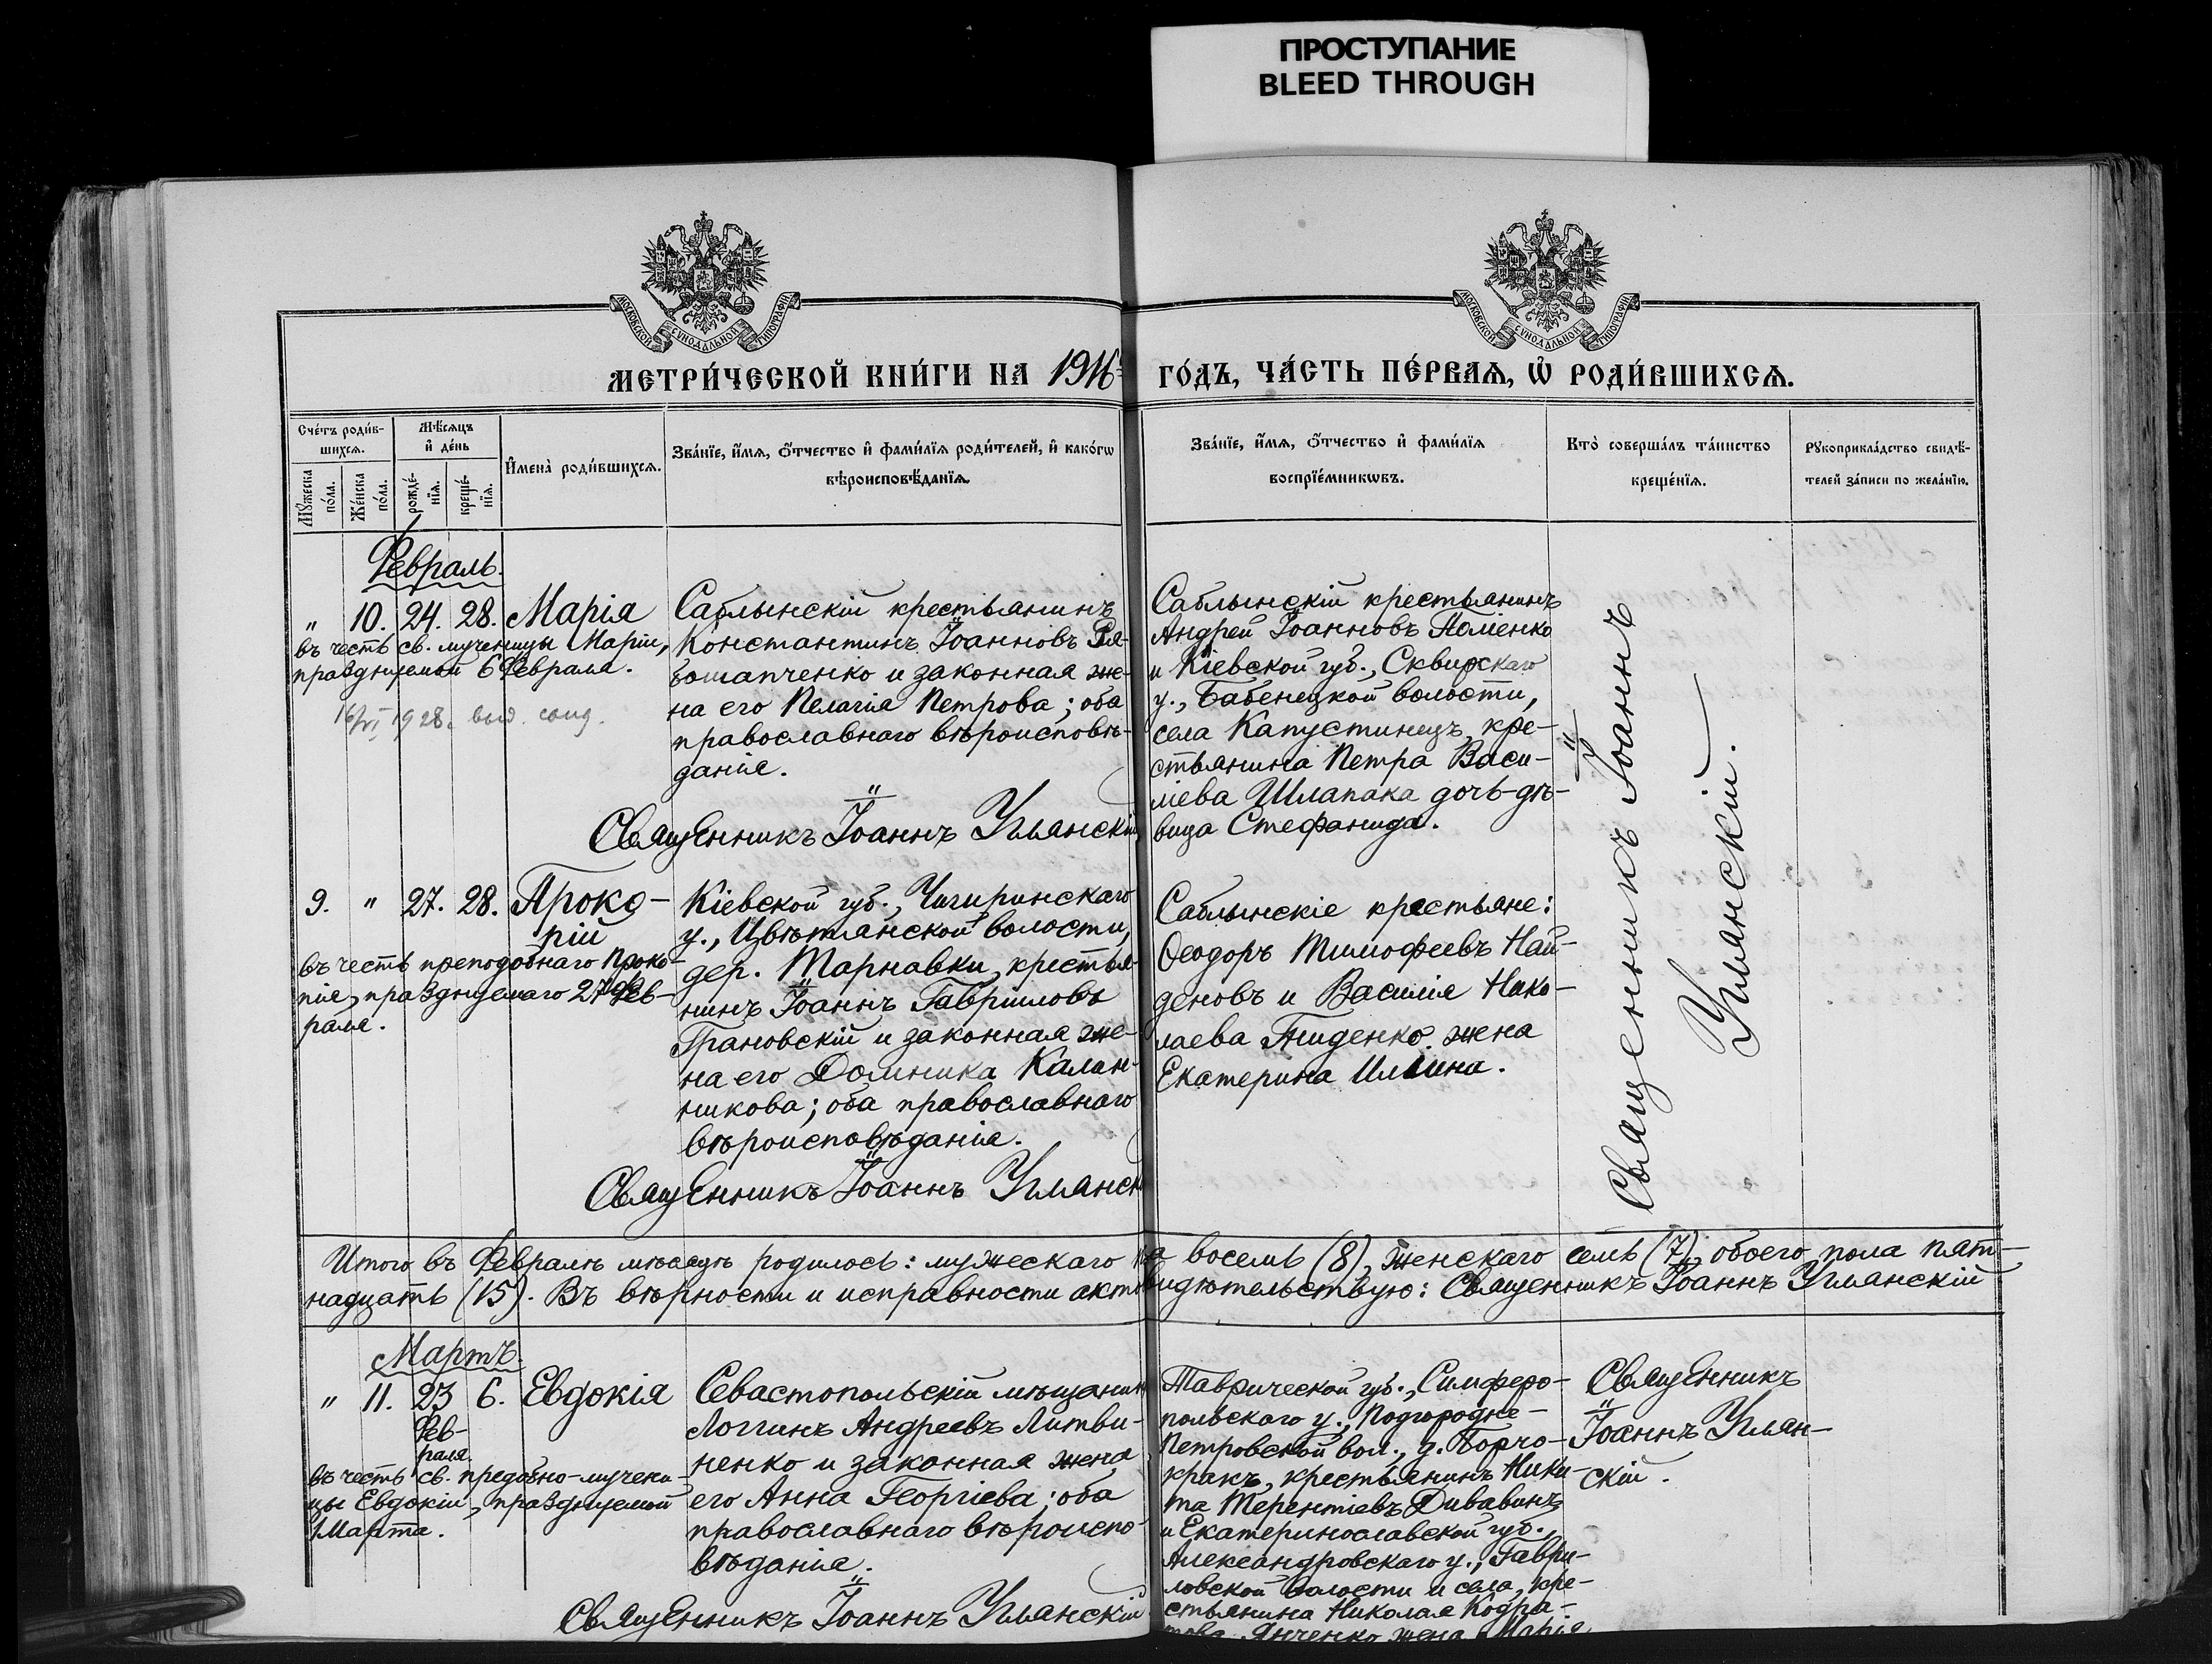 ПРОСТУПАНИЕ
BLEED THROUGH
МОСКОВСКОЙ СѴНОДАЛЬНОЙ ТИПОГРАФІИ
МОСКОВСКОЙ СѴНОДАЛЬНОЙ ТИПОГРАФІИ
МЕТРИ́ЧЕСКОЙ КНИ́ГИ НА 1916 ГО́ДЪ, ЧА́СТЬ ПЕ́РВАЯ, Ѡ РОДИ́ВШИХСЯ.
Сче́тъ роди́в-
шихся.
Мѣсяцъ
и де́нь
Мужеска
по́ла.
Же́нска
по́ла.
рожде́-
нїя.
креще́-
нїя.
Имена̀ роди́вшихся.
Зва́нїе, и́мя, о́тчество и фами́лїя роди́телей, и како́гѡ
вѣроисповѣ́данїя.
Зва́нїе, и́мя, о́тчество и фами́лїя
воспрїе́мникѡвъ.
Кто̀ соверша́лъ та́инство
креще́нїя.
Рукоприкла́дство свидѣ́-
телей за́писи по жела́нїю.
Февраль.
" 10. 24. 28. Марія
въ честь св. мученицы Маріи,
празднуемой 6 Февраля.
16/VI 1928. выд.
Саблынскій крестьянинъ
Константинъ Іоанновъ Ря-
бошапченко и законная же-
на его Пелагія Петрова; оба
православнаго вѣроисповѣ-
данія.
Священникъ Іоаннъ Углянскій
Саблынскій крестьянинъ
Андрей Іоанновъ Хоменко
и Кіевской губ., Сквирскаго
у., Бабенецкой волости,
села Капустинецъ, кре-
стьянина Петра Васи-
ліева Шлапака дочь-дѣ-
вица Стефанида.
Священникъ Іоаннъ
Углянскій.
9. " 27. 28. Проко-
пій
въ честь преподобнаго Проко-
пія, празднуемаго 27 Фев-
раля.
Кіевской губ., Чигиринскаго
у., Цвѣтлянской волости,
дер. Тарнавки, крестья-
нинъ Іоаннъ Гавріиловъ
Грановскій и законная же-
на его Домника Калин-
никова; оба православнаго
вѣроисповѣданія.
Священникъ Іоаннъ Углянск
Саблынскіе крестьяне:
Ѳеодоръ Тимофеевъ Най-
деновъ и Василія Нико-
лаева Гниденко жена
Екатерина Ильина.
Итого въ Февралѣ мѣсяцѣ родилось: мужескаго восемь (8), женскаго семь (7), обоего пола пят-
надцать (15). Въ вѣрности и исправности акто видѣтельствую: Священникъ Іоаннъ Углянскій
Мартъ.
" 11. 23 6. Евдокія
Фев-
раля.
въ честь св. предобно-мучени-
цы Евдокіи, празднуемой
1 Марта.
Севастопольскій мѣщанин
Логгинъ Андреевъ Литви-
ненко и законная жена
его Анна Георгіева; оба
православнаго вѣроиспо-
вѣданія.
Священникъ Іоаннъ Углянскій
Таврической губ., Симферо-
польскаго у., Подгородне-
Петровской вол., д. Борчо-
кракъ, крестьянинъ Ники-
та Терентіевъ Дивавинъ
и Екатеринославской губ.,
Александровскаго у., Гаври-
ловской волости и села, кре-
стьянина Николая Кодра-
това Янченко жена Марія
Священникъ
Іоаннъ Углян-
скій.